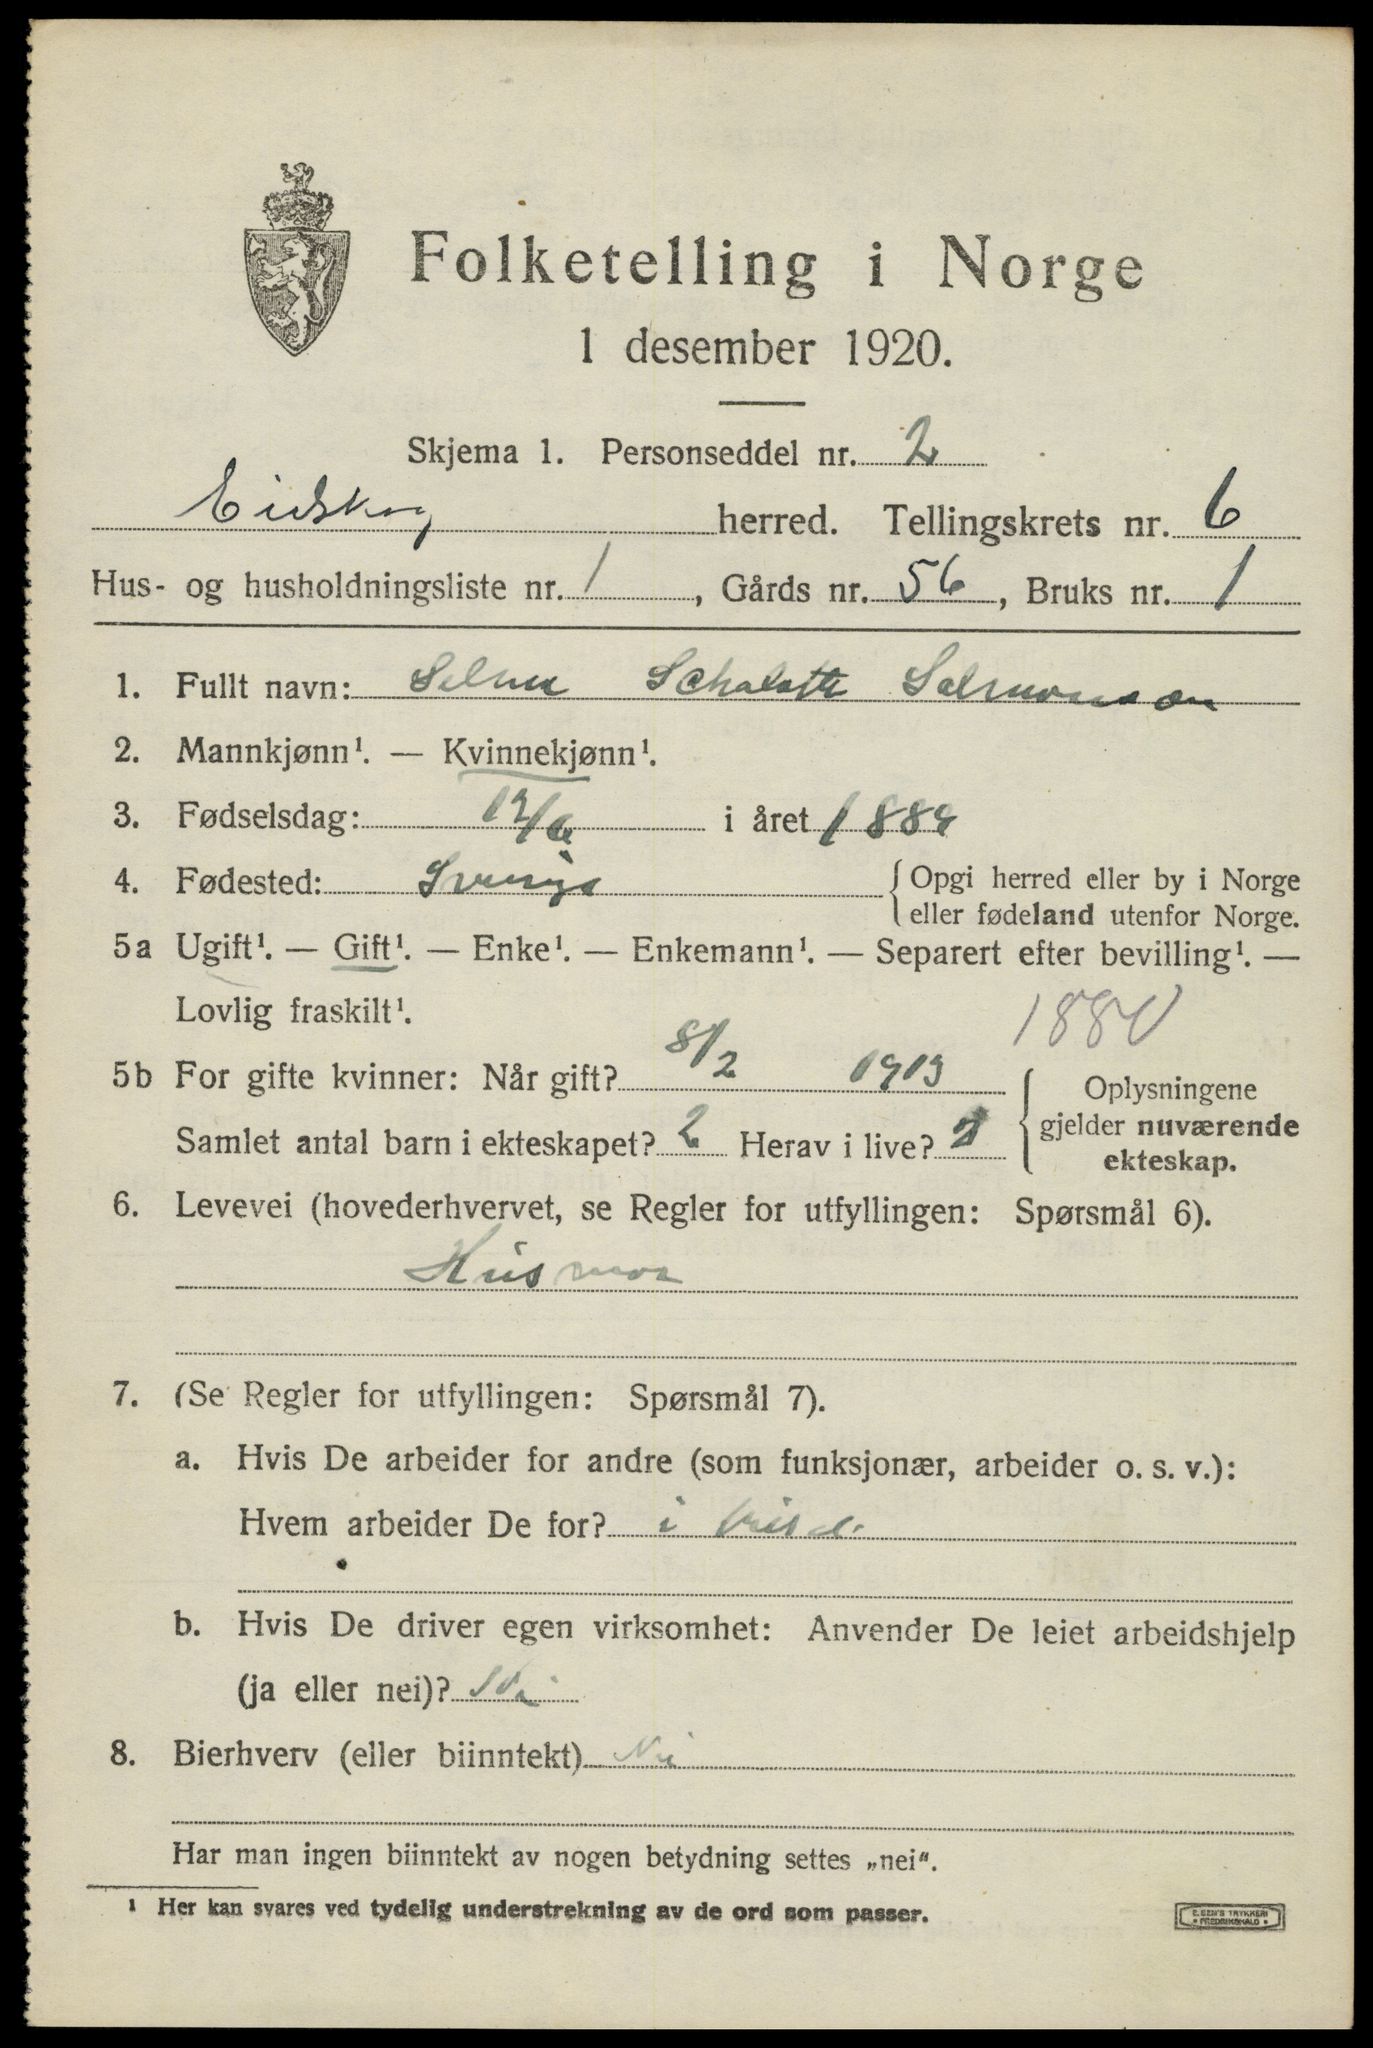 Folketelling i Norge
1 desember 1920.
Skjema 1. Personseddel nr. 2
Eidskog herred. Tellingskrets nr. 6
Hus- og husholdningsliste nr. 1, Gårds nr. 56, Bruks nr. 1
1. Fullt navn: Selma Schalotte
2. Mannkjønn¹. — Kvinnekjønn¹.
3. Fødselsdag: 12/6 i året 1884
4. Fødested: Sverige
Opgi herred eller by i Norge
eller fødeland utenfor Norge.
5a Ugift¹. — Gift¹. — Enke¹. — Enkemann¹. — Separert efter bevilling¹. —
Lovlig fraskilt¹.
5b For gifte kvinner: Når gift? 8/2 1913
Samlet antal barn i ekteskapet? 2 Herav i live? 2
Oplysningene
gjelder nuværende
ekteskap.
6. Levevei (hovederhvervet, se Regler for utfyllingen: Spørsmål 6).
Husmor
7. (Se Regler for utfyllingen: Spørsmål 7).
a. Hvis De arbeider for andre (som funksjonær, arbeider o. s. v.):
Hvem arbeider De for? i
b. Hvis De driver egen virksomhet: Anvender De leiet arbeidshjelp
(ja eller nei)? Nei
8. Bierhverv (eller biinntekt) Nei
Har man ingen biinntekt av nogen betydning settes „nei“.
¹ Her kan svares ved tydelig understrekning av de ord som passer.
E. SEM'S TRYKKERI
FREDRIKSHALD